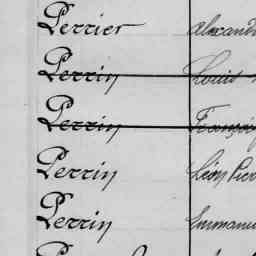 Perrier Alexand
Perrin Louis
Perrin Françoi
Perrin Léon Pier
Perrin Emmanu